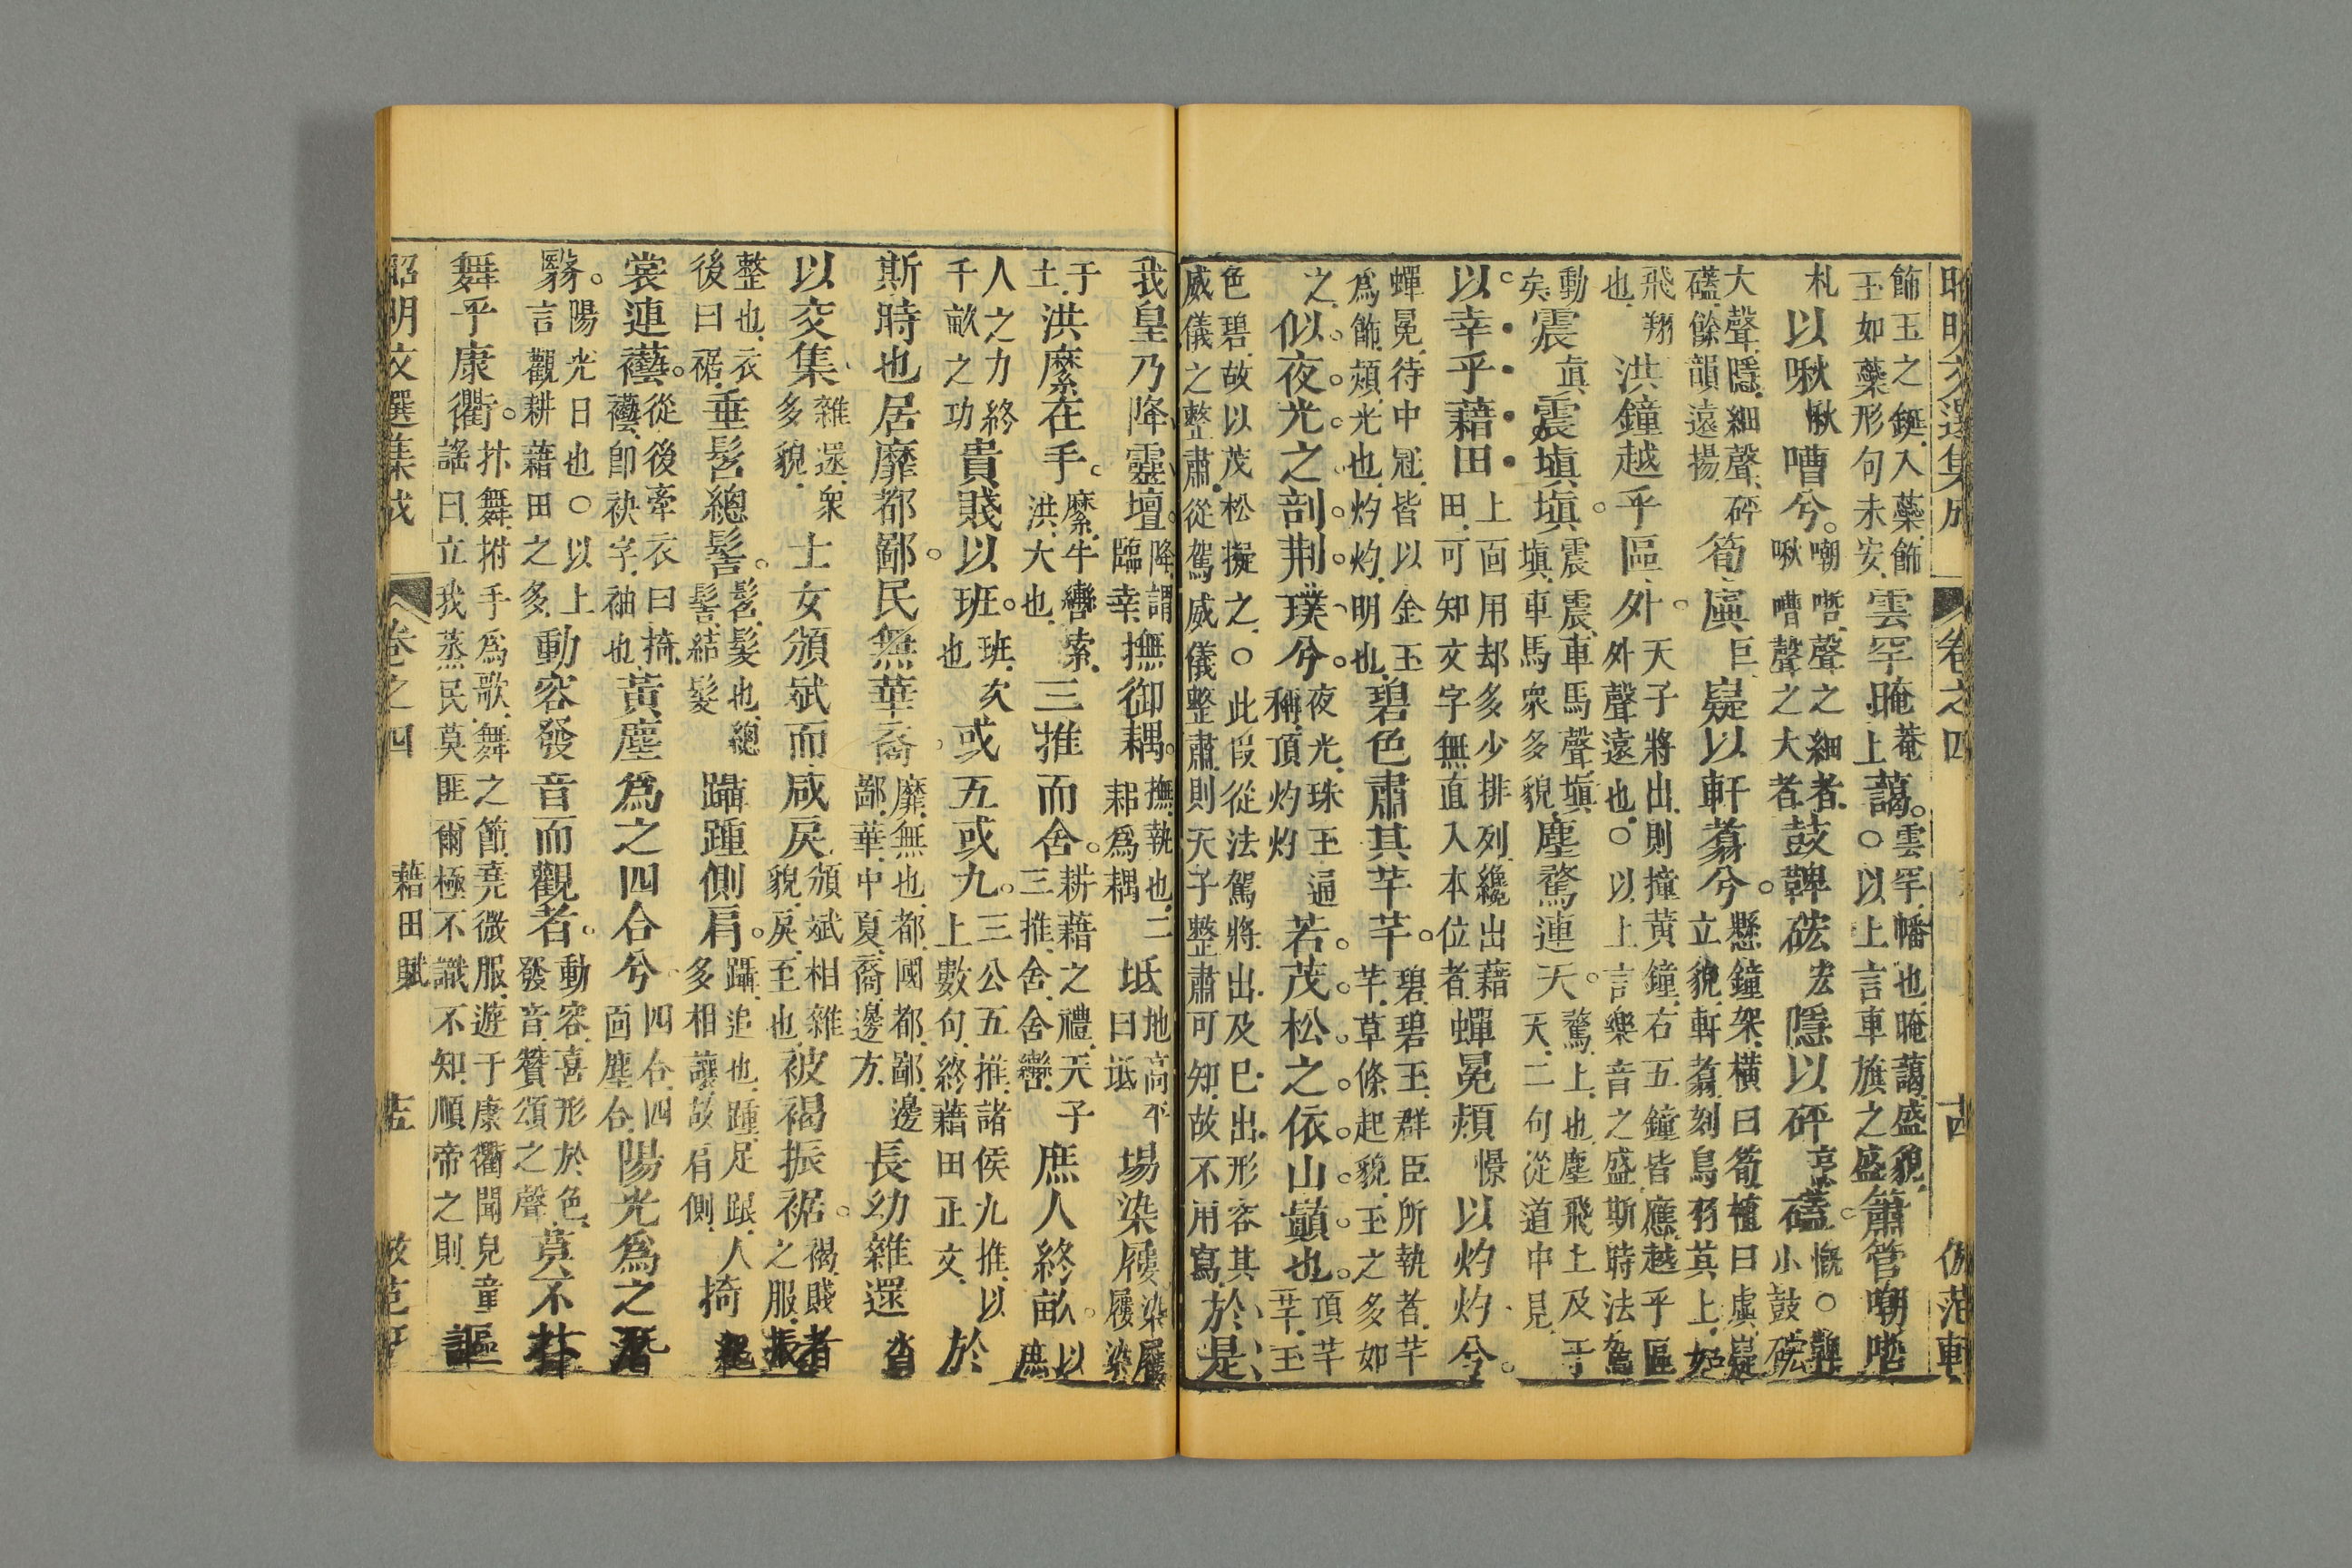 昭明文選集成 卷之四 十四 倣范軒
飾玉之鋋入藥飾玉如藥形句未安雲䍐晻菴上藹。雲䍐幡也晻藹盛貌○以上言車旗之盛簫管嘲哳
札以啾愀嘈兮。嘲哳聲之細者啾嘈聲之大者鼓鞞硡宏隱以砰亨礚。慨○鞞小鼓硡
大聲隱細聲砰礚餘韻遠揚筍虡巨嶷以軒翥兮。懸鐘架橫曰筍植曰虡嶷立貌軒翥刻鳥羽其上如
飛翔也洪鐘越乎區外。天子將出則撞黃鐘右五鐘皆應越乎區外聲遠也○以上言樂音之盛斯時法駕
動矣震真震塡塡。震震車馬聲塡塡車馬衆多貌塵騖連天。騖上也塵飛上及于天二句從道中見
以幸乎藉田上面用却多少排列纔出藉田可知文字無直入本位者蟬冕熲憬以灼灼兮。
蟬冕待中冠皆以金玉爲飾熲光也灼灼明也碧色肅其芊芊。碧碧玉群臣所執者芊芊草條起貌玉之多如
之似夜光之剖荆璞兮。夜光珠玉通稱頂灼灼若茂松之依山巔也。頂芊芊玉
色碧故以茂松擬之○此叚從法駕將出及巳出形容其威儀之整肅從駕威儀整肅則天子整肅可知故不用寫於是
我皇乃降靈壇。降謂臨幸撫御耦。撫執也二耜爲耦坻地高平曰坻場染屨染屨屨染
于土洪縻在手。縻牛轡索洪大也三推而舍。耕藉之禮天子三推舍舍轡庶人終畝。以庶
人之力終千畝之功貴賤以班。班次也或五或九。三公五推諸侯九推以上數句終藉田正文於
斯時也居靡都鄙。民無華裔。靡無也都國都鄙邊鄙華中夏裔邊方長幼雜遝沓
以交集雜遝衆多貌士女頒斌而咸戾頒斌相雜貌戾至也被褐振裾。褐賤者之服振
整也衣後曰裾垂髫總髻。髫髮也總髻結髮躡踵側肩。躡追也踵足跟人多相讓故肩側掎起
裳連褹。從後牽衣曰掎褹卽袂字袖也黃塵爲之四合兮四合四面塵合陽光爲之潛
翳。陽光日也○以上言觀耕藉田之多動容發音而觀者。動容喜形於色發音贊頌之聲莫不抃
舞乎康衢。抃舞拊手爲歌舞之節堯微服遊于康衢聞兒童謠曰立我蒸民莫匪爾極不識不知順帝之則謳
昭明文選集成 卷之四 藉田賦 十五